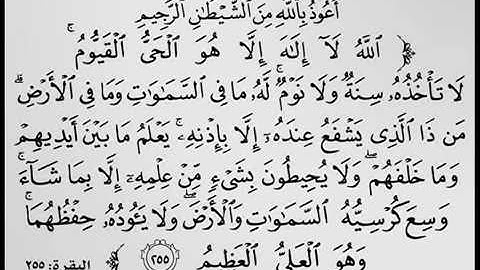 أَعُوذُ بِاللَّهِ مِنَ الشَّيْطَانِ الرَّجِيمِ
ٱللَّهُ لَآ إِلَٰهَ إِلَّا هُوَ ٱلْحَىُّ ٱلْقَيُّومُ ۚ
لَا تَأْخُذُهُۥ سِنَةٌ وَلَا نَوْمٌ ۚ لَّهُۥ مَا فِى ٱلسَّمَٰوَٰتِ وَمَا فِى ٱلْأَرْضِ ۗ
مَن ذَا ٱلَّذِى يَشْفَعُ عِندَهُۥٓ إِلَّا بِإِذْنِهِۦ ۚ يَعْلَمُ مَا بَيْنَ أَيْدِيهِمْ
وَمَا خَلْفَهُمْ ۖ وَلَا يُحِيطُونَ بِشَىْءٍ مِّنْ عِلْمِهِۦٓ إِلَّا بِمَا شَآءَ ۚ
وَسِعَ كُرْسِيُّهُ ٱلسَّمَٰوَٰتِ وَٱلْأَرْضَ ۖ وَلَا يَـُٔودُهُۥ حِفْظُهُمَا ۚ
وَهُوَ ٱلْعَلِىُّ ٱلْعَظِيمُ ٢٥٥ البقرة: ٢٥٥